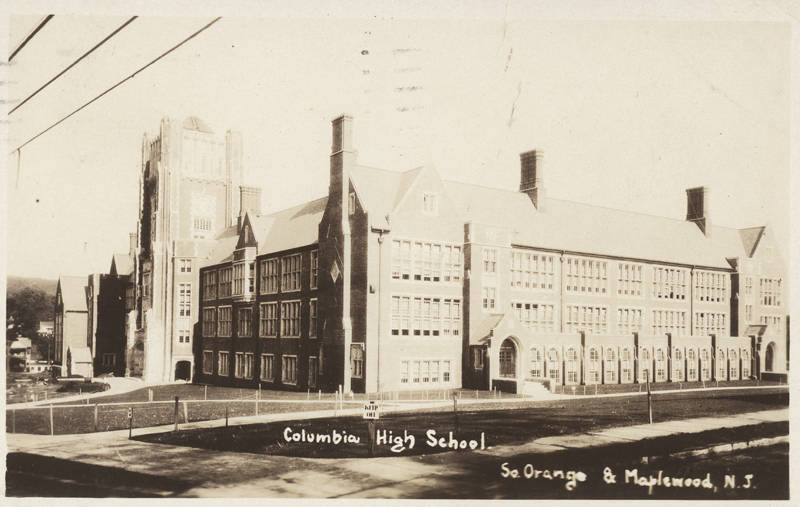 KEEP
OFF
Columbia High School.
So. Orange & Maplewood, N.J.